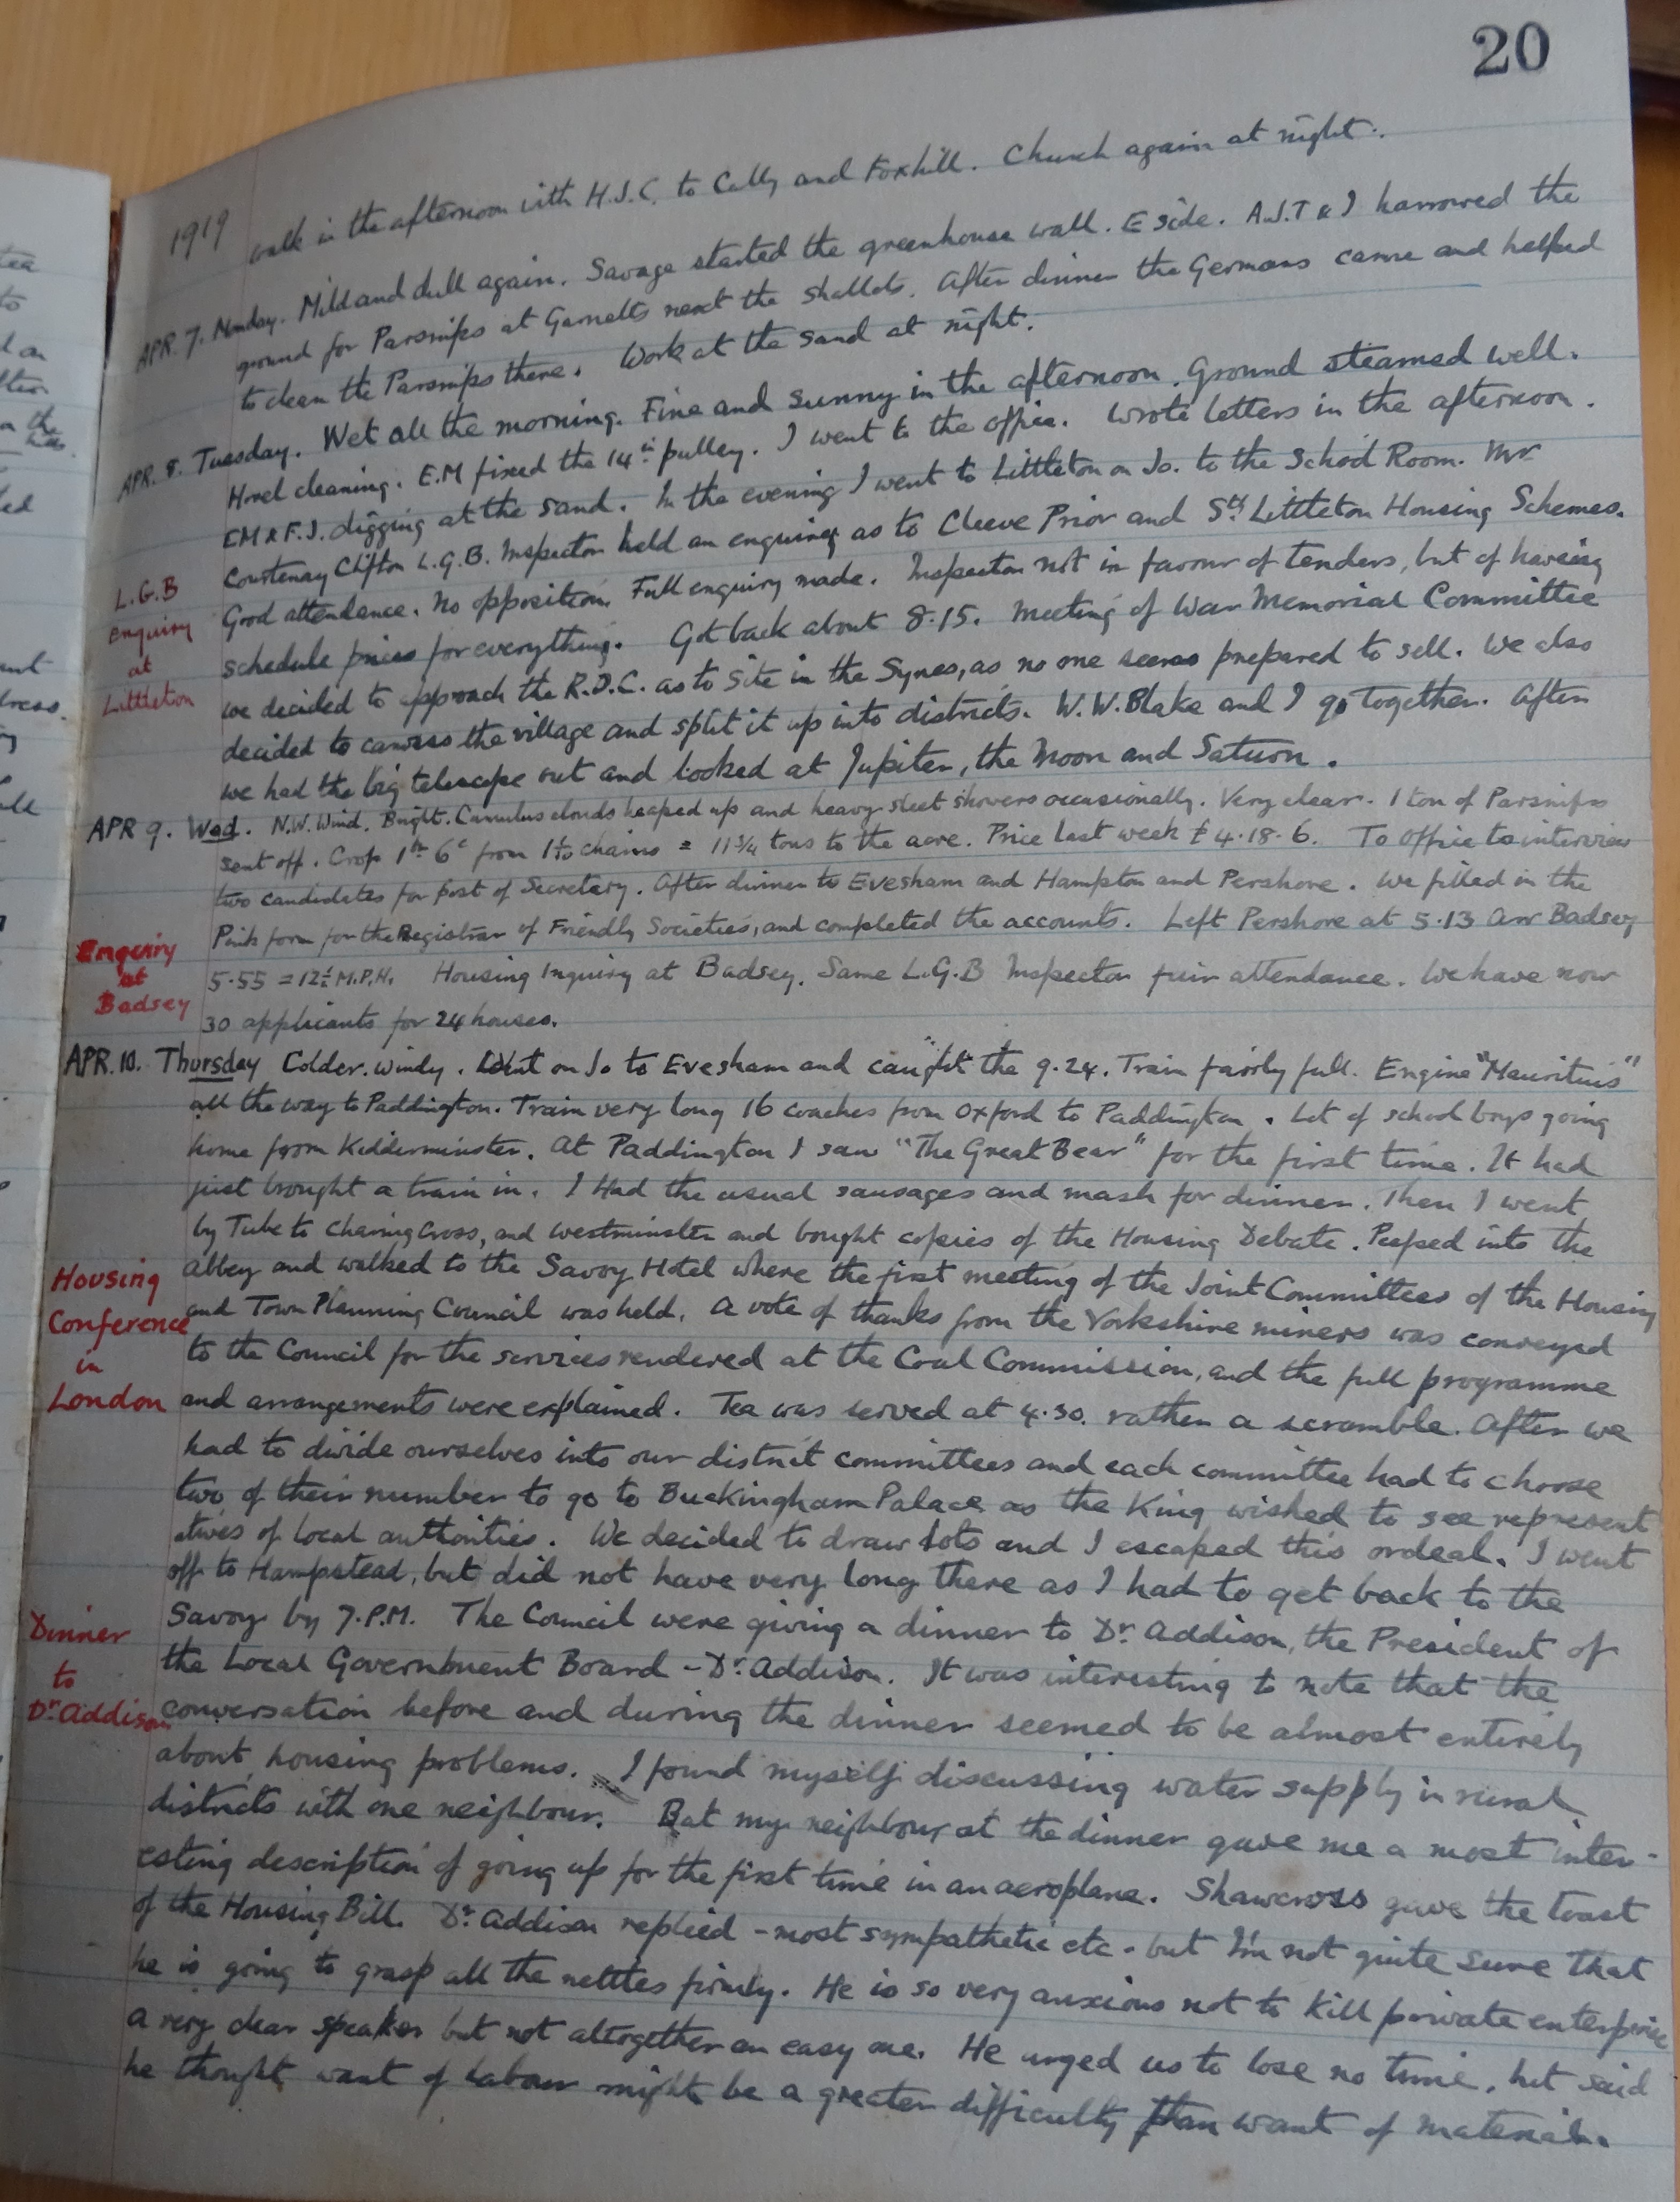 20
1919
walk in the afternoon with H.J.C. to Cully and Foxhill. Church again at night.
APR. 7. Monday. Mild and dull again. Savage started the greenhouse wall. E side. A.J.T & I harrowed the
ground for Parsnips at Garnetts next the shallots. After dinner the Germans came and helped
to clean the Parsnips there. Work at the sand at night.
APR. 8. Tuesday. Wet all the morning. Fine and sunny in the afternoon. Ground steamed well.
Hovel cleaning. E.M fixed the 14in pulley. I went to the office. Wrote letters in the afternoon.
EM & F.J. digging at the sand. In the evening I went to Littleton on Jo. to the School Room. Mr
L.G.B enquiry at Littleton
Courtenay Clifton L.G.B. Inspector held an enquiry as to Cleeve Prior and Sth Littleton Housing Schemes.
Good attendance. No opposition. Full enquiry made. Inspector not in favour of tenders, but of having
schedule prices for everything. Got back about 8.15. Meeting of War Memorial Committee
we decided to approach the R.D.C. as to site in the Synes, as no one seems prepared to sell. We also
decided to canvass the village and split it up into districts. W.W.Blake and I go together. After
we had the big telescope out and looked at Jupiter, the Moon and Saturn.
APR 9. Wed. N.W. Wind. Bright. Cumulus clouds heaped up and heavy sleet showers occasionally. Very clear. 1 ton of Parsnips
sent off. Crop 1tn 6c from chains = 11 3/4 tons to the acre. Price last week £4.18.6. To Office to interview
two candidates for post of Secretary. After dinner to Evesham and Hampton and Pershore. We filled in the
Pink form for the Registrar of Friendly Societies, and completed the accounts. Left Pershore at 5.13 arr Badsey
Enquiry at Badsey
5.55 = 12½ M.P.H. Housing Inquiry at Badsey. Same L.G.B Inspector fair attendance. We have now
30 applicants for 24 houses.
APR. 10. Thursday Colder. windy. Went on Jo to Evesham and caught the 9.24. Train fairly full. Engine "Mauritius"
all the way to Paddington. Train very long 16 coaches from Oxford to Paddington. Lot of school boys going
home from Kidderminster. At Paddington I saw "The Great Bear" for the first time. It had
just brought a train in. I Had the usual sausages and mash for dinner. Then I went
by Tube to Charing Cross, and Westminster and bought copies of the Housing Debate. Peeped into the
Housing Conference in London
Abbey and walked to the Savoy Hotel where the first meeting of the Joint Committees of the Housing
and Town Planning Council was held. A vote of thanks from the Yorkshire miners was conveyed
to the Council for the services rendered at the Coal Commission, and the full programme
and arrangements were explained. Tea was served at 4.30. rather a scramble. After we
had to divide ourselves into our district committees and each committee had to choose
two of their number to go to Buckingham Palace as the King wished to see represent
atives of local authorities. We decided to draw lots and I escaped this ordeal. I went
off to Hampstead, but did not have very long there as I had to get back to the
Dinner to Dr. Addison
Savoy by 7.P.M. The Council were giving a dinner to Dr. Addison, the President of
the Local Government Board – Dr. Addison. It was interesting to note that the
conversation before and during the dinner seemed to be almost entirely
about housing problems. I found myself discussing water supply in rural
districts with one neighbour. But my neighbour at the dinner gave me a most inter-
esting description of going up for the first time in an aeroplane. Shawcross gave the toast
of the Housing Bill. Dr. Addison replied – most sympathetic etc - but I'm not quite sure that
he is going to grasp all the nettles firmly. He is so very anxious not to kill private enterprise
a very clear speaker but not altogether an easy one. He urged us to lose no time, but said
he thought want of labour might be a greater difficulty than want of material.